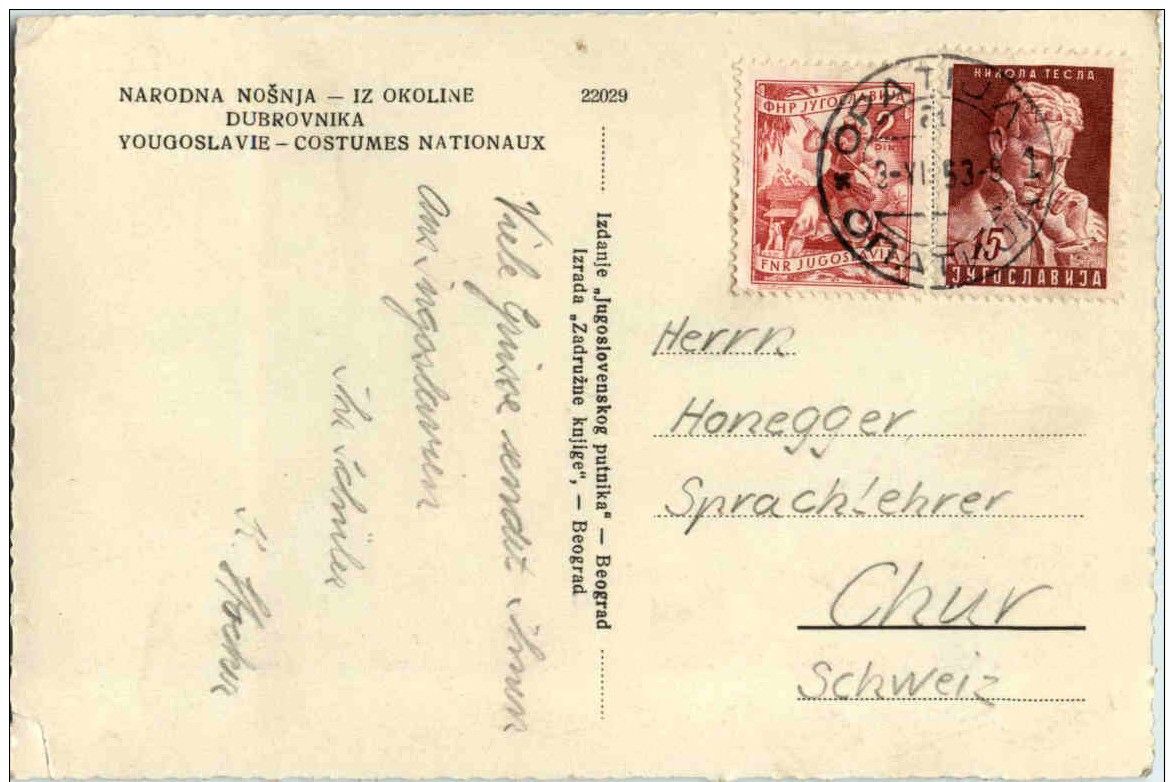 NARODNA NOŠNJA — IZ OKOLINE
DUBROVNIKA
YOUGOSLAVIE — COSTUMES NATIONAUX
22029
ФНР ЈУГОСЛАВИЈА
2
DIN
FNR JUGOSLAVIJA
НИКОЛА ТЕСЛА
15
ЈУГОСЛАВИЈА
OPATIJA 1
ОПАТИЈА
Izdanje „Jugoslovenskog putnika“ — Beograd
Izrada „Zadružne knjige“, — Beograd
Viele Grüsse sendet Ihnen
aus Jugoslawien
Ihr Schüler
K.
Herrn
Honegger
Sprachlehrer
Chur
Schweiz